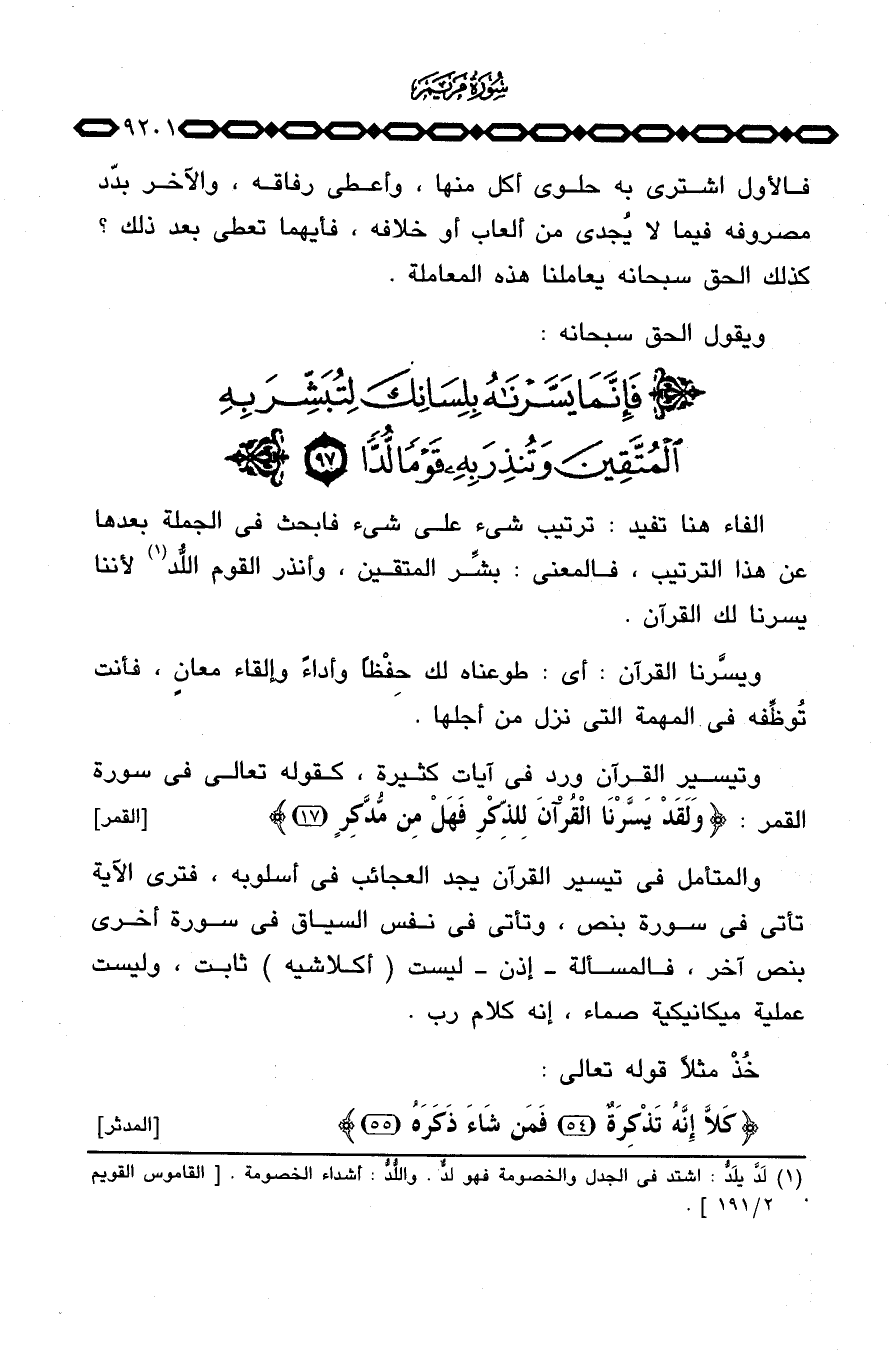 سُورَةُ مَرْيَم
٩٢٠١
فـالأول اشـترى به حلـوى أكل منها ، وأعـطـى رفاقـه ، والآخـر بدّد
مصروفه فيما لا يُجدى من ألعاب أو خلافه ، فأيهما تعطى بعد ذلك ؟
كذلك الحق سبحانه يعاملنا هذه المعاملة .
ويقول الحق سبحانه :
فَإِنَّمَا يَسَّرْنَاهُ بِلِسَانِكَ لِتُبَشِّرَ بِهِ
ٱلْمُتَّقِينَ وَتُنذِرَ بِهِ قَوْمًا لُّدًّا ٩٧
الفاء هنا تفيد : ترتيب شىء علـى شىء فابحث فى الجملة بعدها
عن هذا الترتيب ، فـالمعنى : بشِّر المتقـين ، وأنذر القوم اللُّد(١) لأننا
يسرنا لك القرآن .
ويسَّرنا القرآن : أى : طوعناه لك حِفْظاً وأداءً وإلقاء معانٍ ، فأنت
تُوظِّفه فى المهمة التى نزل من أجلها .
وتيسـير القـرآن ورد فى آيات كثـيرة ، كـقوله تعالـى فى سورة
القمر : ﴿ وَلَقَدْ يَسَّرْنَا الْقُرْآنَ لِلذِّكْرِ فَهَلْ مِن مُّدَّكِرٍ (١٧) ﴾ [القمر]
والمتأمل فى تيسير القرآن يجد العجائب فى أسلوبه ، فترى الآية
تأتى فى سـورة بنص ، وتأتى فى نـفس السـياق فى سـورة أخـرى
بنص آخر ، فـالمسـألة - إذن - ليست ( أكـلاشيه ) ثابـت ، وليست
عملية ميكانيكية صماء ، إنه كلام رب .
خُذْ مثلاً قوله تعالى :
﴿ كَلاَّ إِنَّهُ تَذْكِرَةٌ (٥٤) فَمَن شَاءَ ذَكَرَهُ (٥٥) ﴾ [المدثر]
(١) لَدَّ يلَدُّ : اشتد فى الجدل والخصومة فهو لدٌّ . واللُّدُّ : أشداء الخصومة . [ القاموس القويم
٢/ ١٩١ ] .